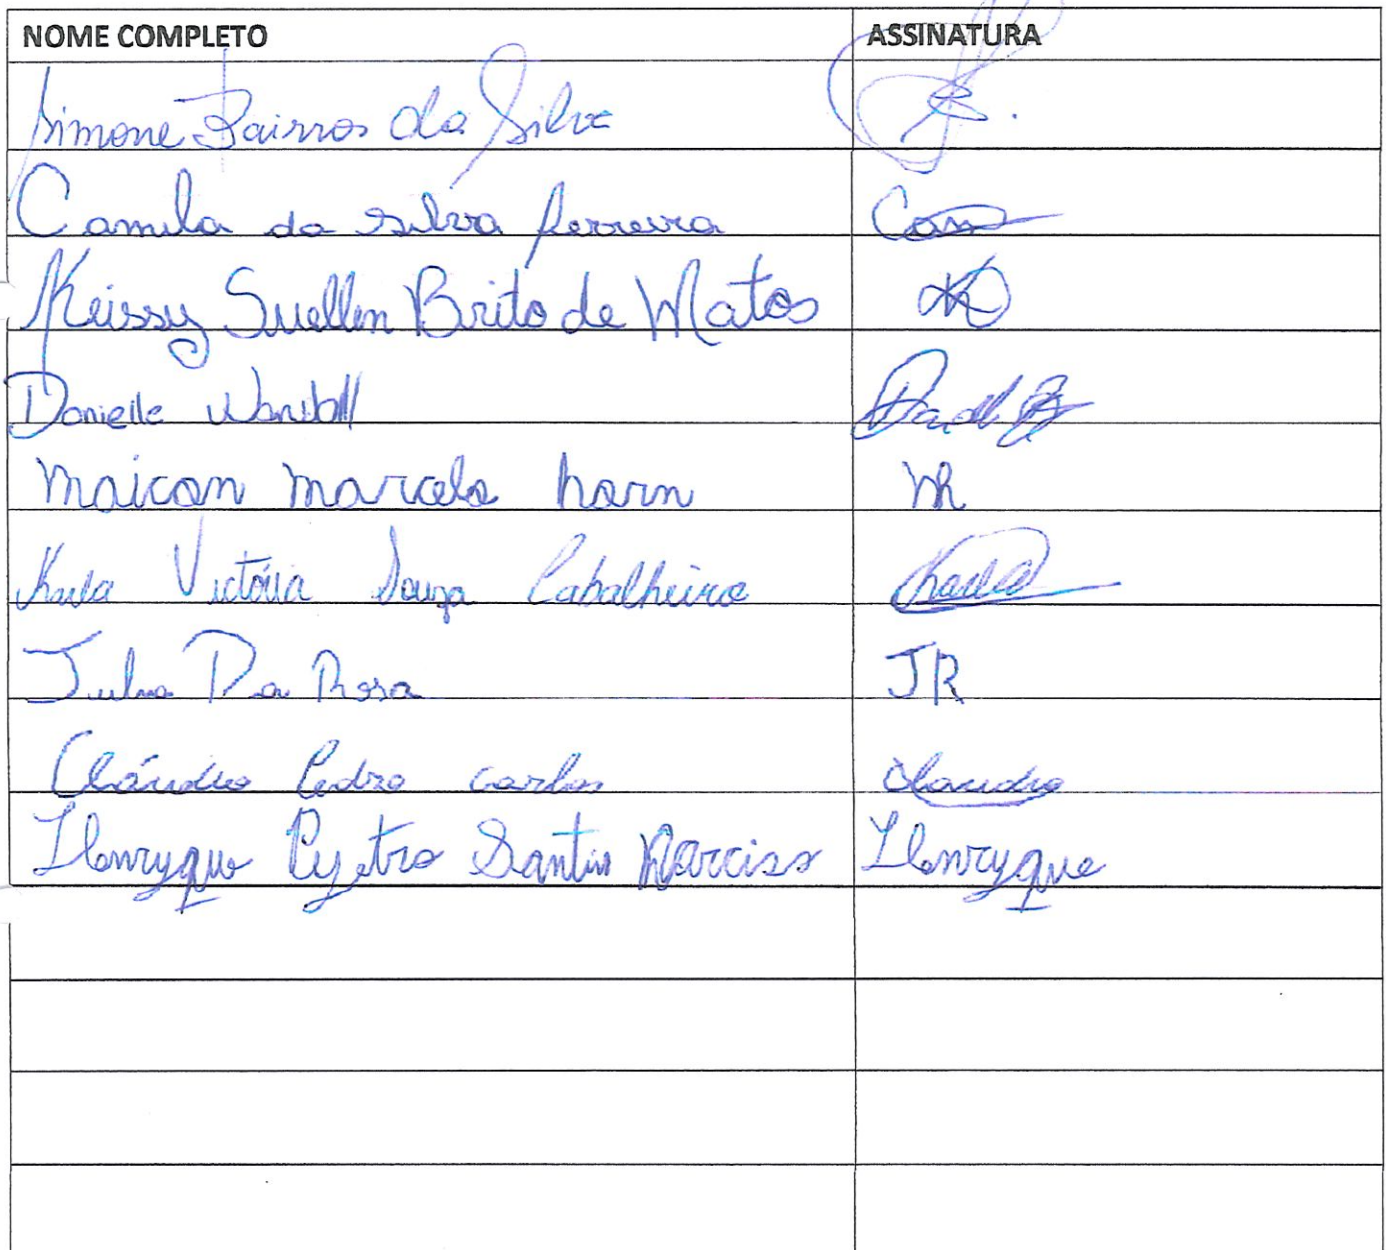 NOME COMPLETO ASSINATURA
Simone Bairros da Silva
Camila da Silva ferreira Cam
Keissy Suellen Brito de Matos
Danielle
maicon marcelo horn
Karla Victória Souza Cabalheiro Karla
Julia Da Rosa JR
Cláudio Pedro Carlos Claudio
Henryque Pyetro Santos Narciso Henryque